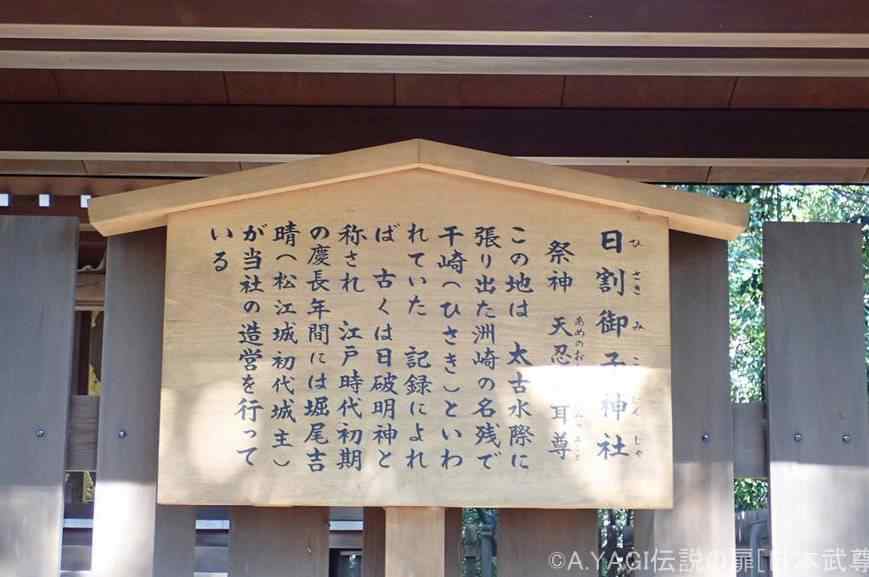 日割御子神社
ひさきみこじんじゃ
祭神 天忍 耳尊
この地は 太古水際に
張り出た洲崎の名残で
干崎(ひさき)といわ
れていた 記録によれ
ば 古くは日破明神と
称され 江戸時代初期
の慶長年間には堀尾吉
晴(松江城初代城主)
が当社の造営を行って
いる
©A.YAGI伝説の扉[日本武尊